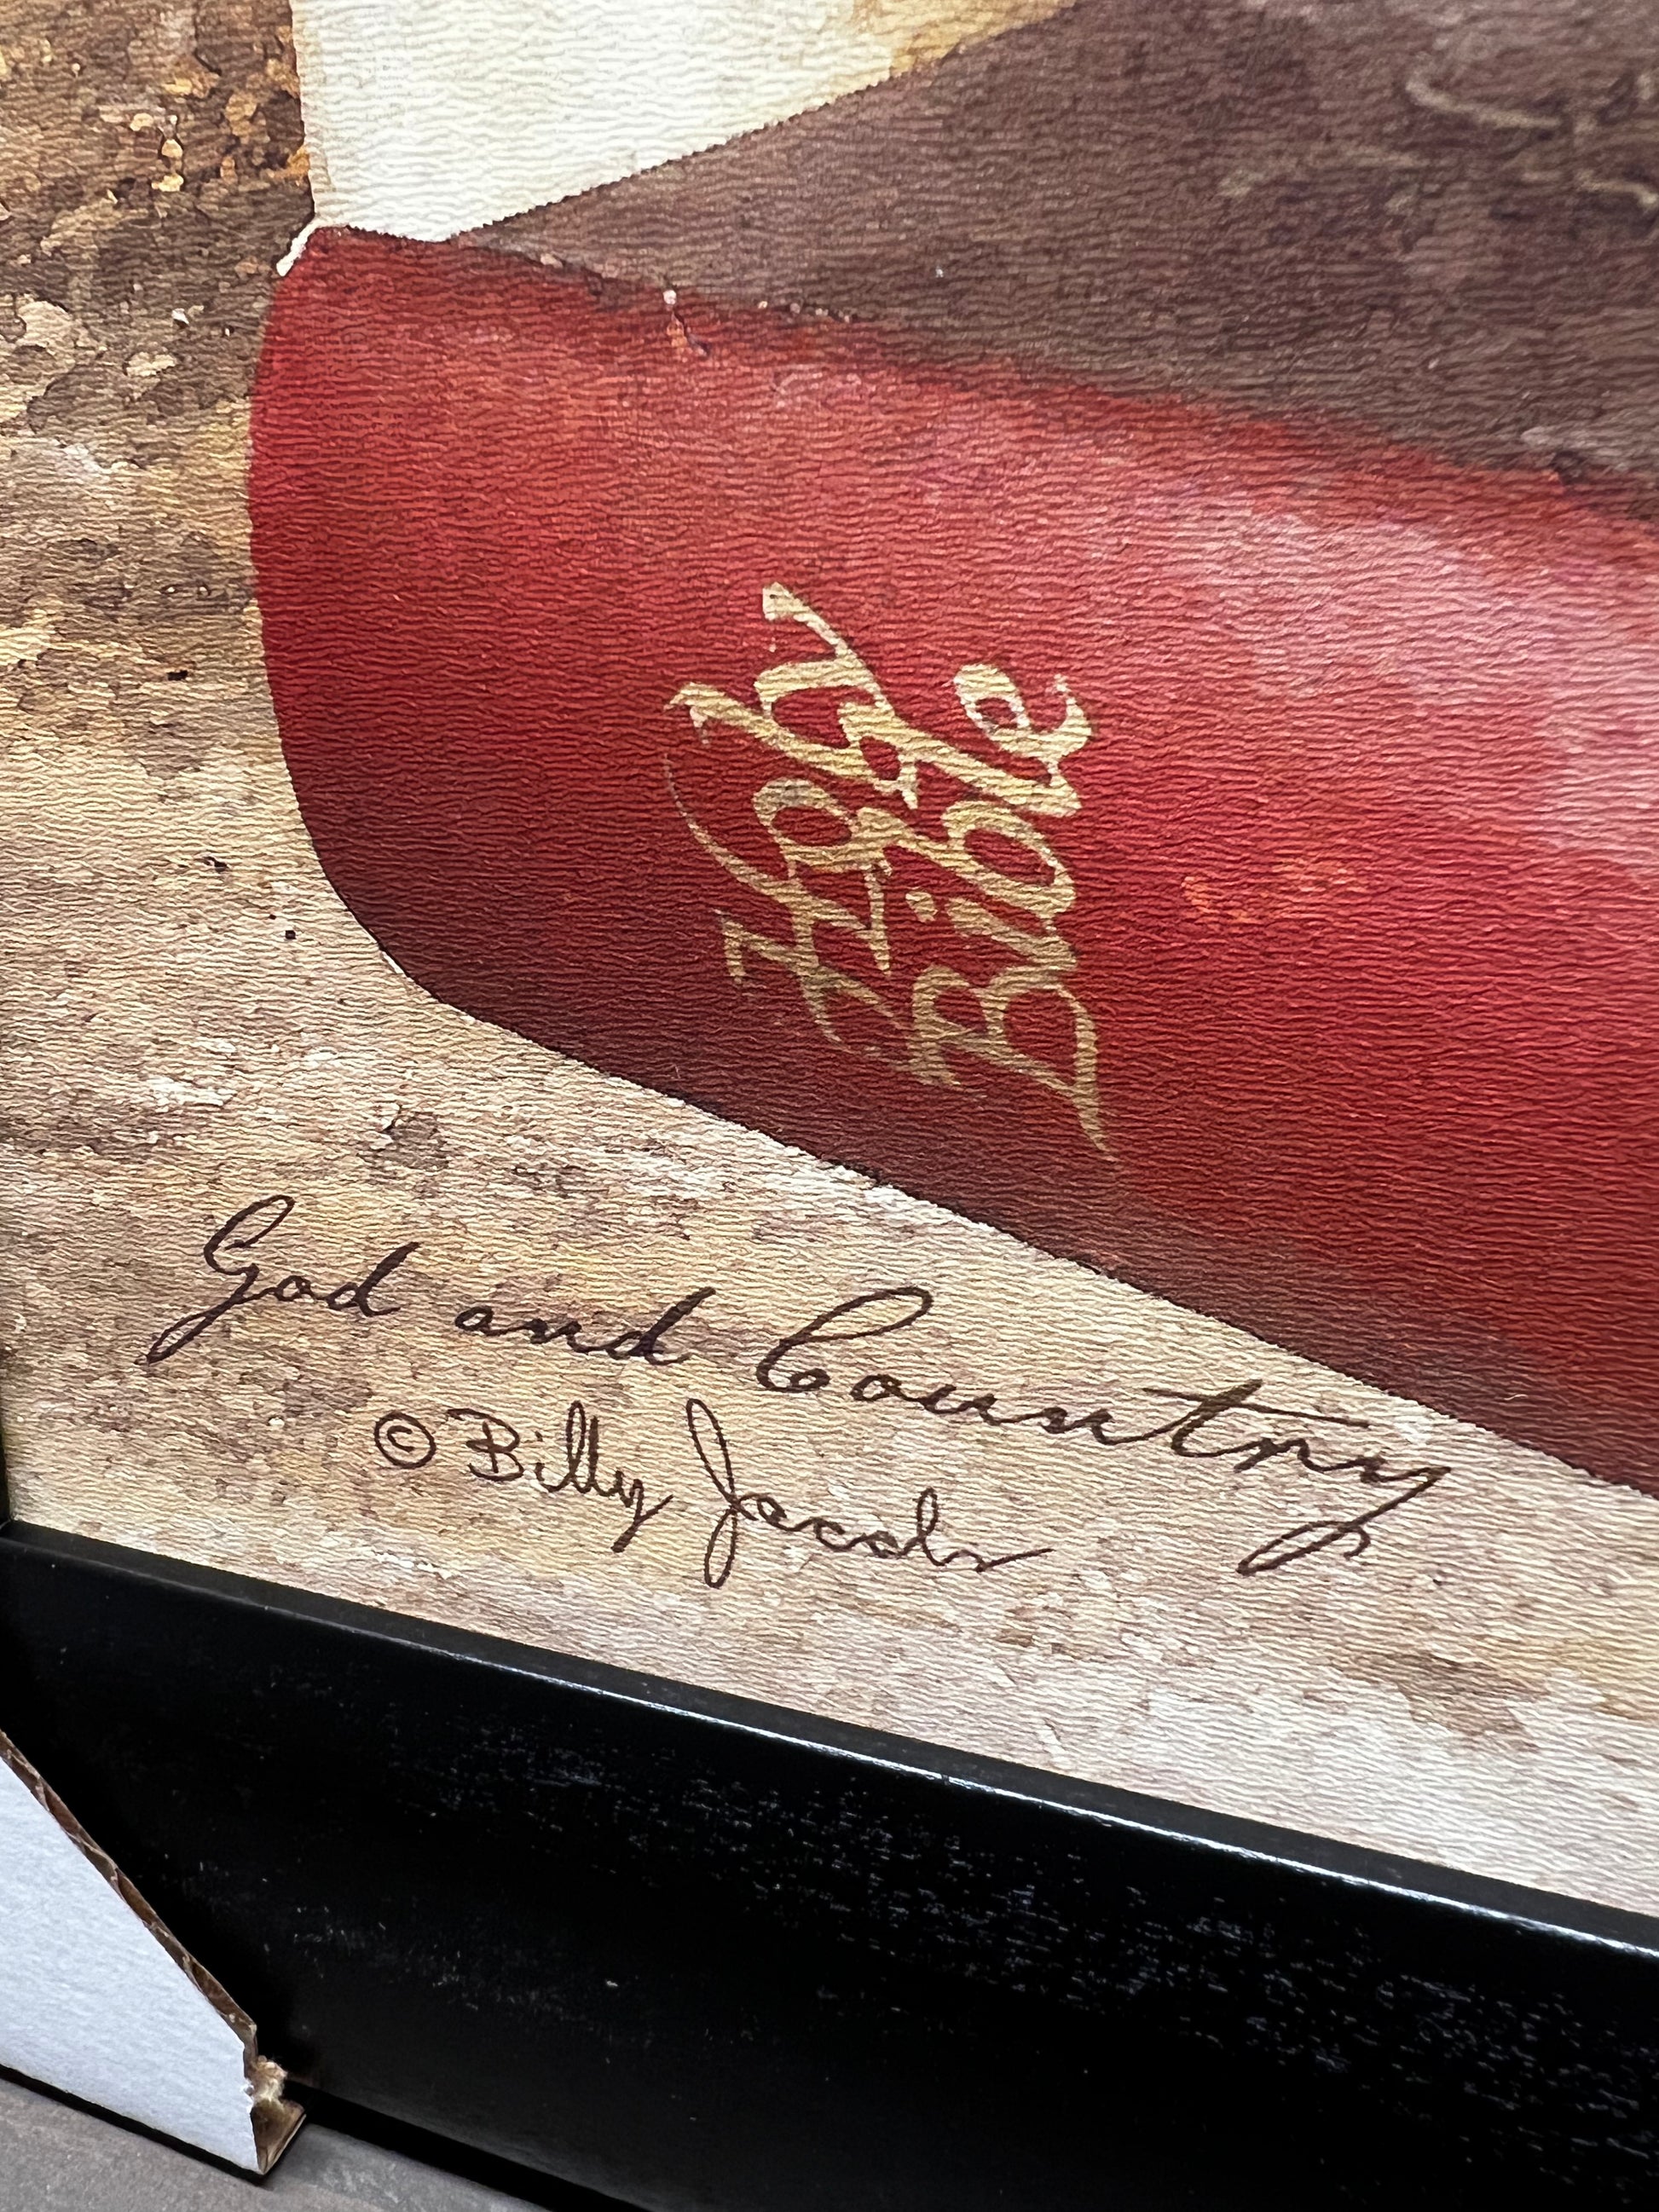 Holy
Bible
God and Country
© Billy Jacobs